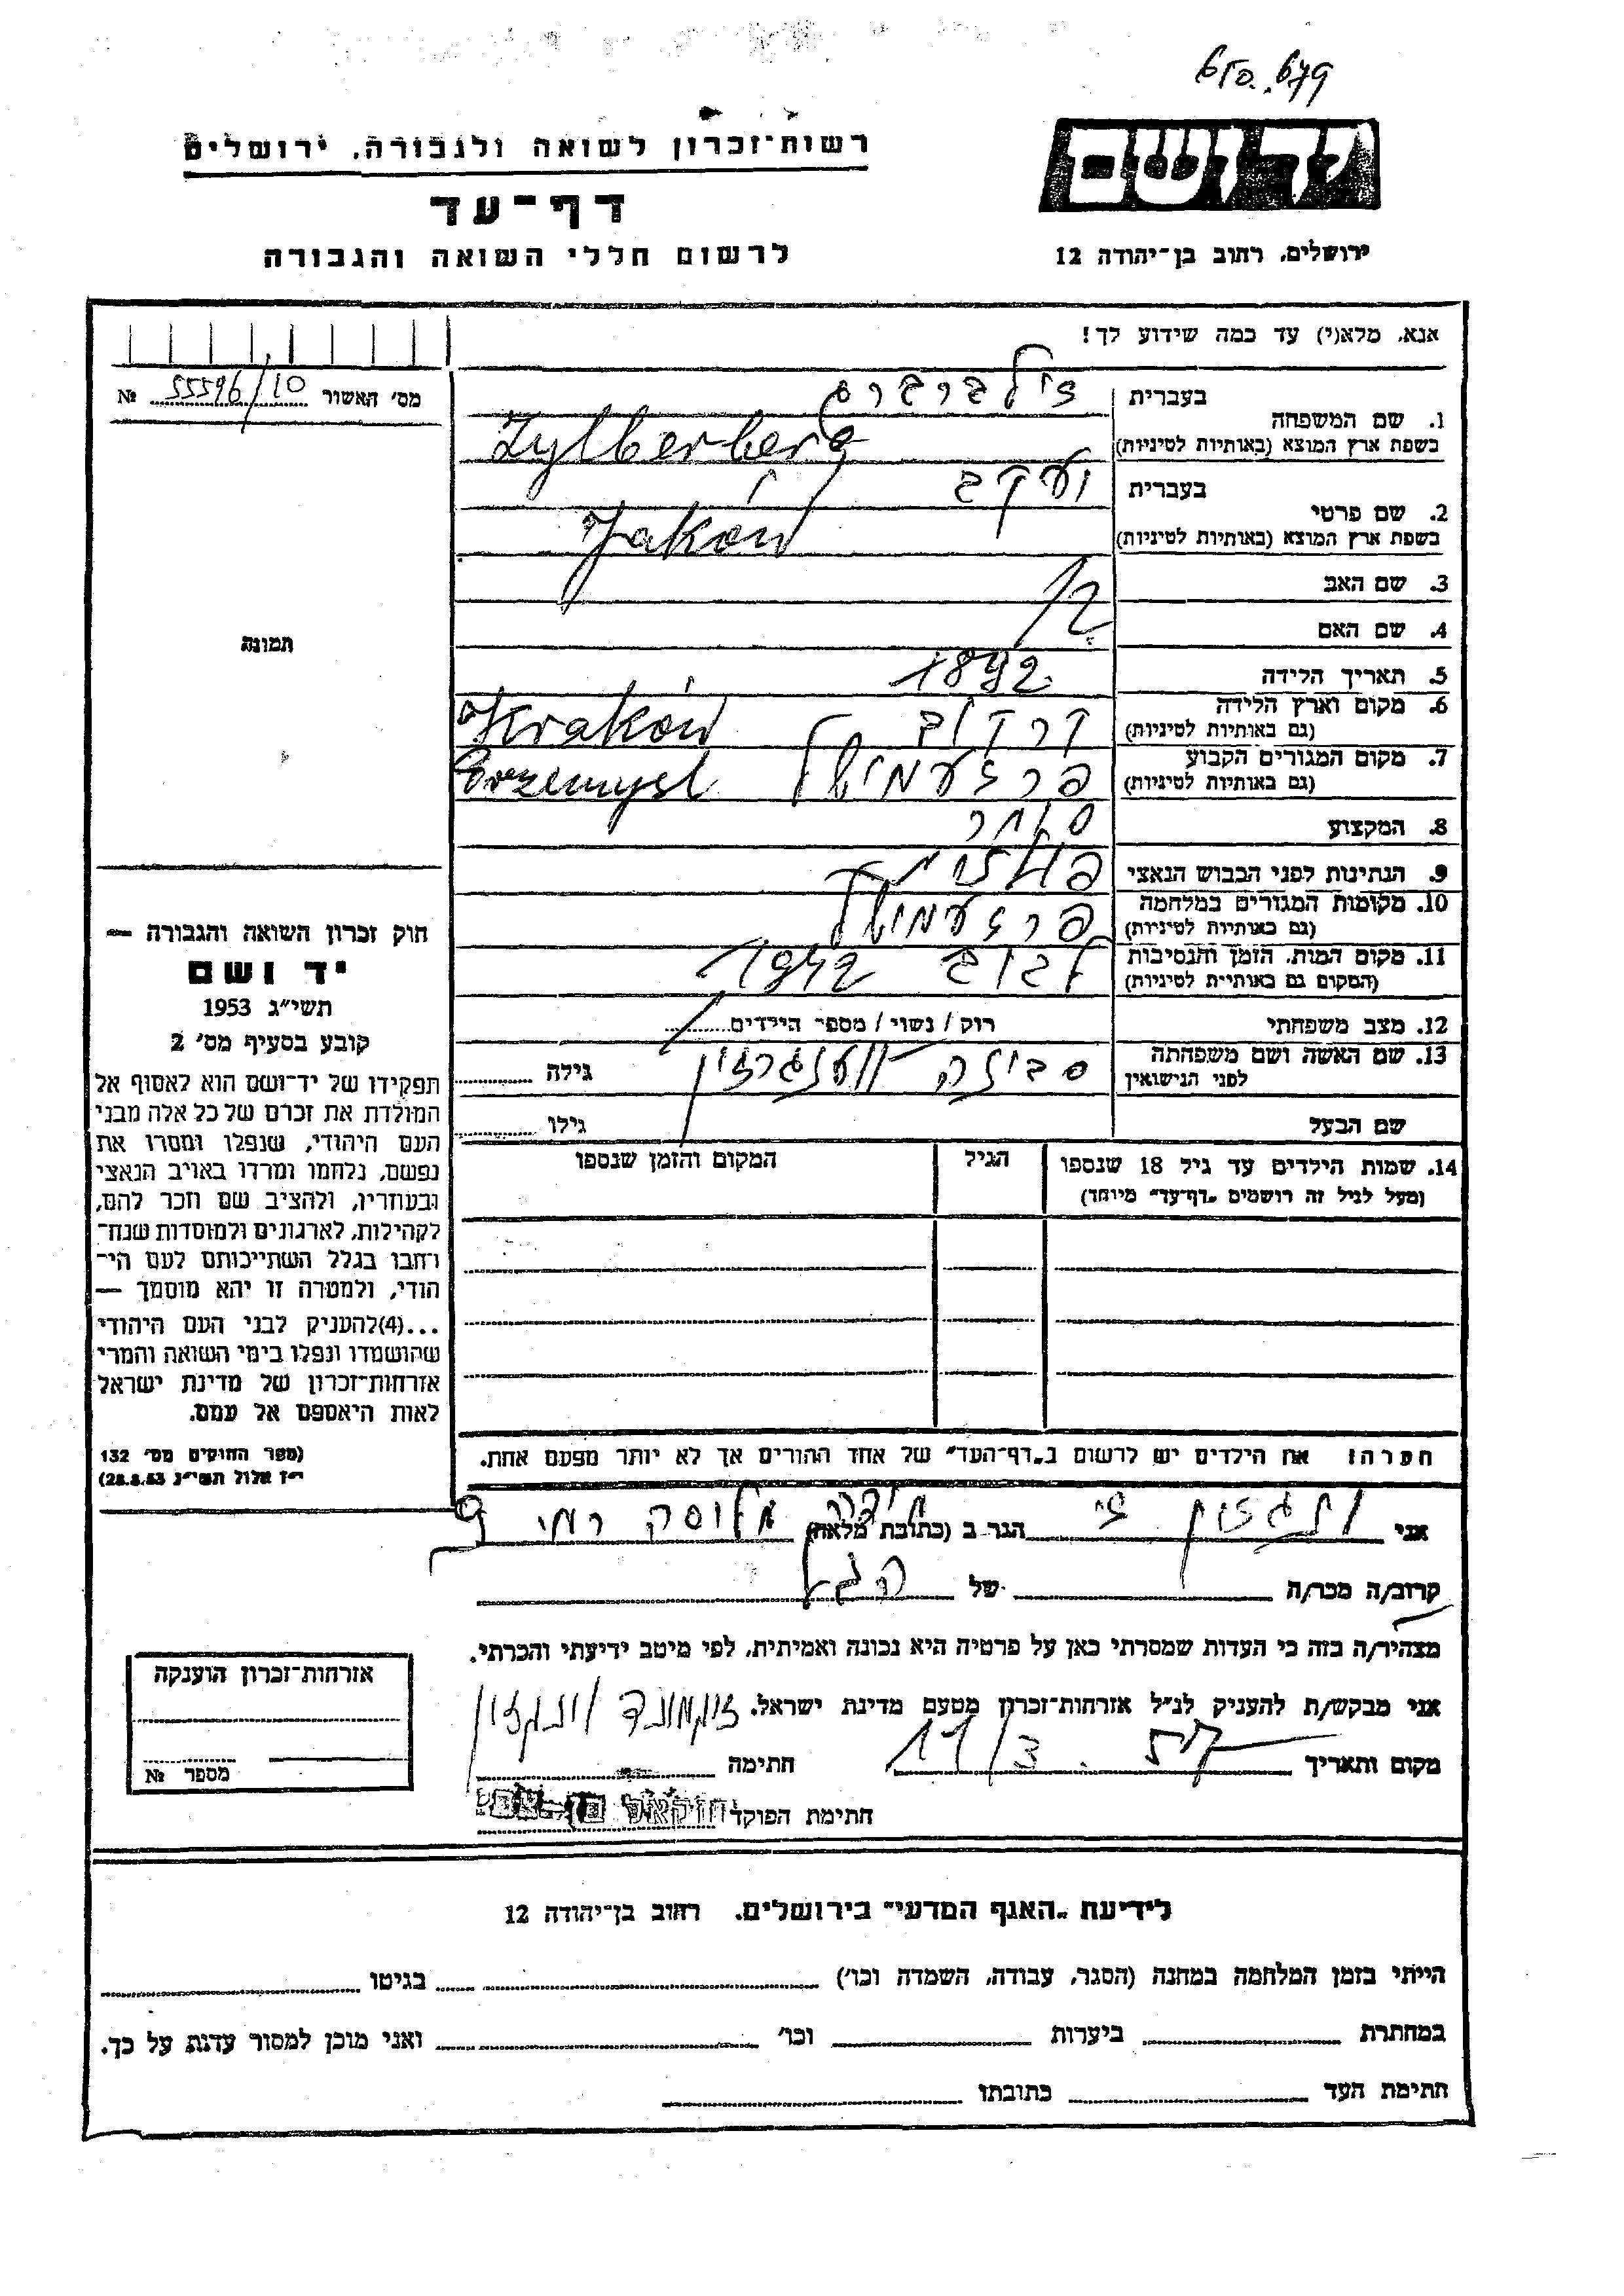 רשות־זכרון לשואה ולגבורה, ירושלים
דף־עד
לרשום חללי השואה והגבורה
יד ושם
ירושלים, רחוב בן־יהודה 12
אנא, מלא(י) עד כמה שידוע לך!
מס׳ האשור 55596/10 №
תמונה
1. שם המשפחה בעברית זילברברג
בשפת ארץ המוצא (באותיות לטיניות) Zylberberg
2. שם פרטי בעברית יעקב
בשפת ארץ המוצא (באותיות לטיניות) Jaków
3. שם האב
4. שם האם
5. תאריך הלידה 1892
6. מקום וארץ הלידה קרקוב Kraków
(גם באותיות לטיניות)
7. מקום המגורים הקבוע פרזעמישל Przemysl
(גם באותיות לטיניות)
8. המקצוע סוחר
9. הנתינות לפני הכבוש הנאצי פולנית
10. מקומות המגורים במלחמה פרזעמישל
(גם באותיות לטיניות)
11. מקום המות, הזמן והנסיבות לבוב 1942
(המקום גם באותיות לטיניות)
12. מצב משפחתי רוק / נשוי / מספר הילדים
13. שם האשה ושם משפחתה גילה
לפני הנישואין
שם הבעל גילו
14. שמות הילדים עד גיל 18 שנספו הגיל המקום והזמן שנספו
(מעל לגיל זה רושמים „דף־עד” מיוחד)
הערה: את הילדים יש לרשום ב„דף־העד” של אחד ההורים אך לא יותר מפעם אחת.
חוק זכרון השואה והגבורה —
יד ושם
תשי״ג 1953
קובע בסעיף מס׳ 2
תפקידו של יד־ושם הוא לאסוף אל
המולדת את זכרם של כל אלה מבני
העם היהודי, שנפלו ומסרו את
נפשם, נלחמו ומרדו באויב הנאצי
ובעוזריו, ולהציב שם וזכר להם,
לקהילות, לארגונים ולמוסדות שנח־
רבו בגלל השתייכותם לעם הי־
הודי, ולמטרה זו יהא מוסמך —
...(4)להעניק לבני העם היהודי
שהושמדו ונפלו בימי השואה והמרי
אזרחות־זכרון של מדינת ישראל
לאות היאספם אל עמם.
(ספר החוקים מס׳ 132
י״ז אלול תשי״ג 28.8.53)
אני הגר ב (כתובת מלאה) 9
קרוב/ה מכר/ה של
מצהיר/ה בזה כי העדות שמסרתי כאן על פרטיה היא נכונה ואמיתית, לפי מיטב ידיעתי והכרתי.
אני מבקש/ת להעניק לנ״ל אזרחות־זכרון מטעם מדינת ישראל.
מקום ותאריך חתימה
חתימת הפוקד
אזרחות־זכרון הוענקה
מספר №
לידיעת „האגף המדעי” בירושלים, רחוב בן־יהודה 12
הייתי בזמן המלחמה במחנה (הסגר, עבודה, השמדה וכו׳) בגיטו
במחתרת ביערות וכו׳ ואני מוכן למסור עדות על כך.
חתימת העד כתובתו